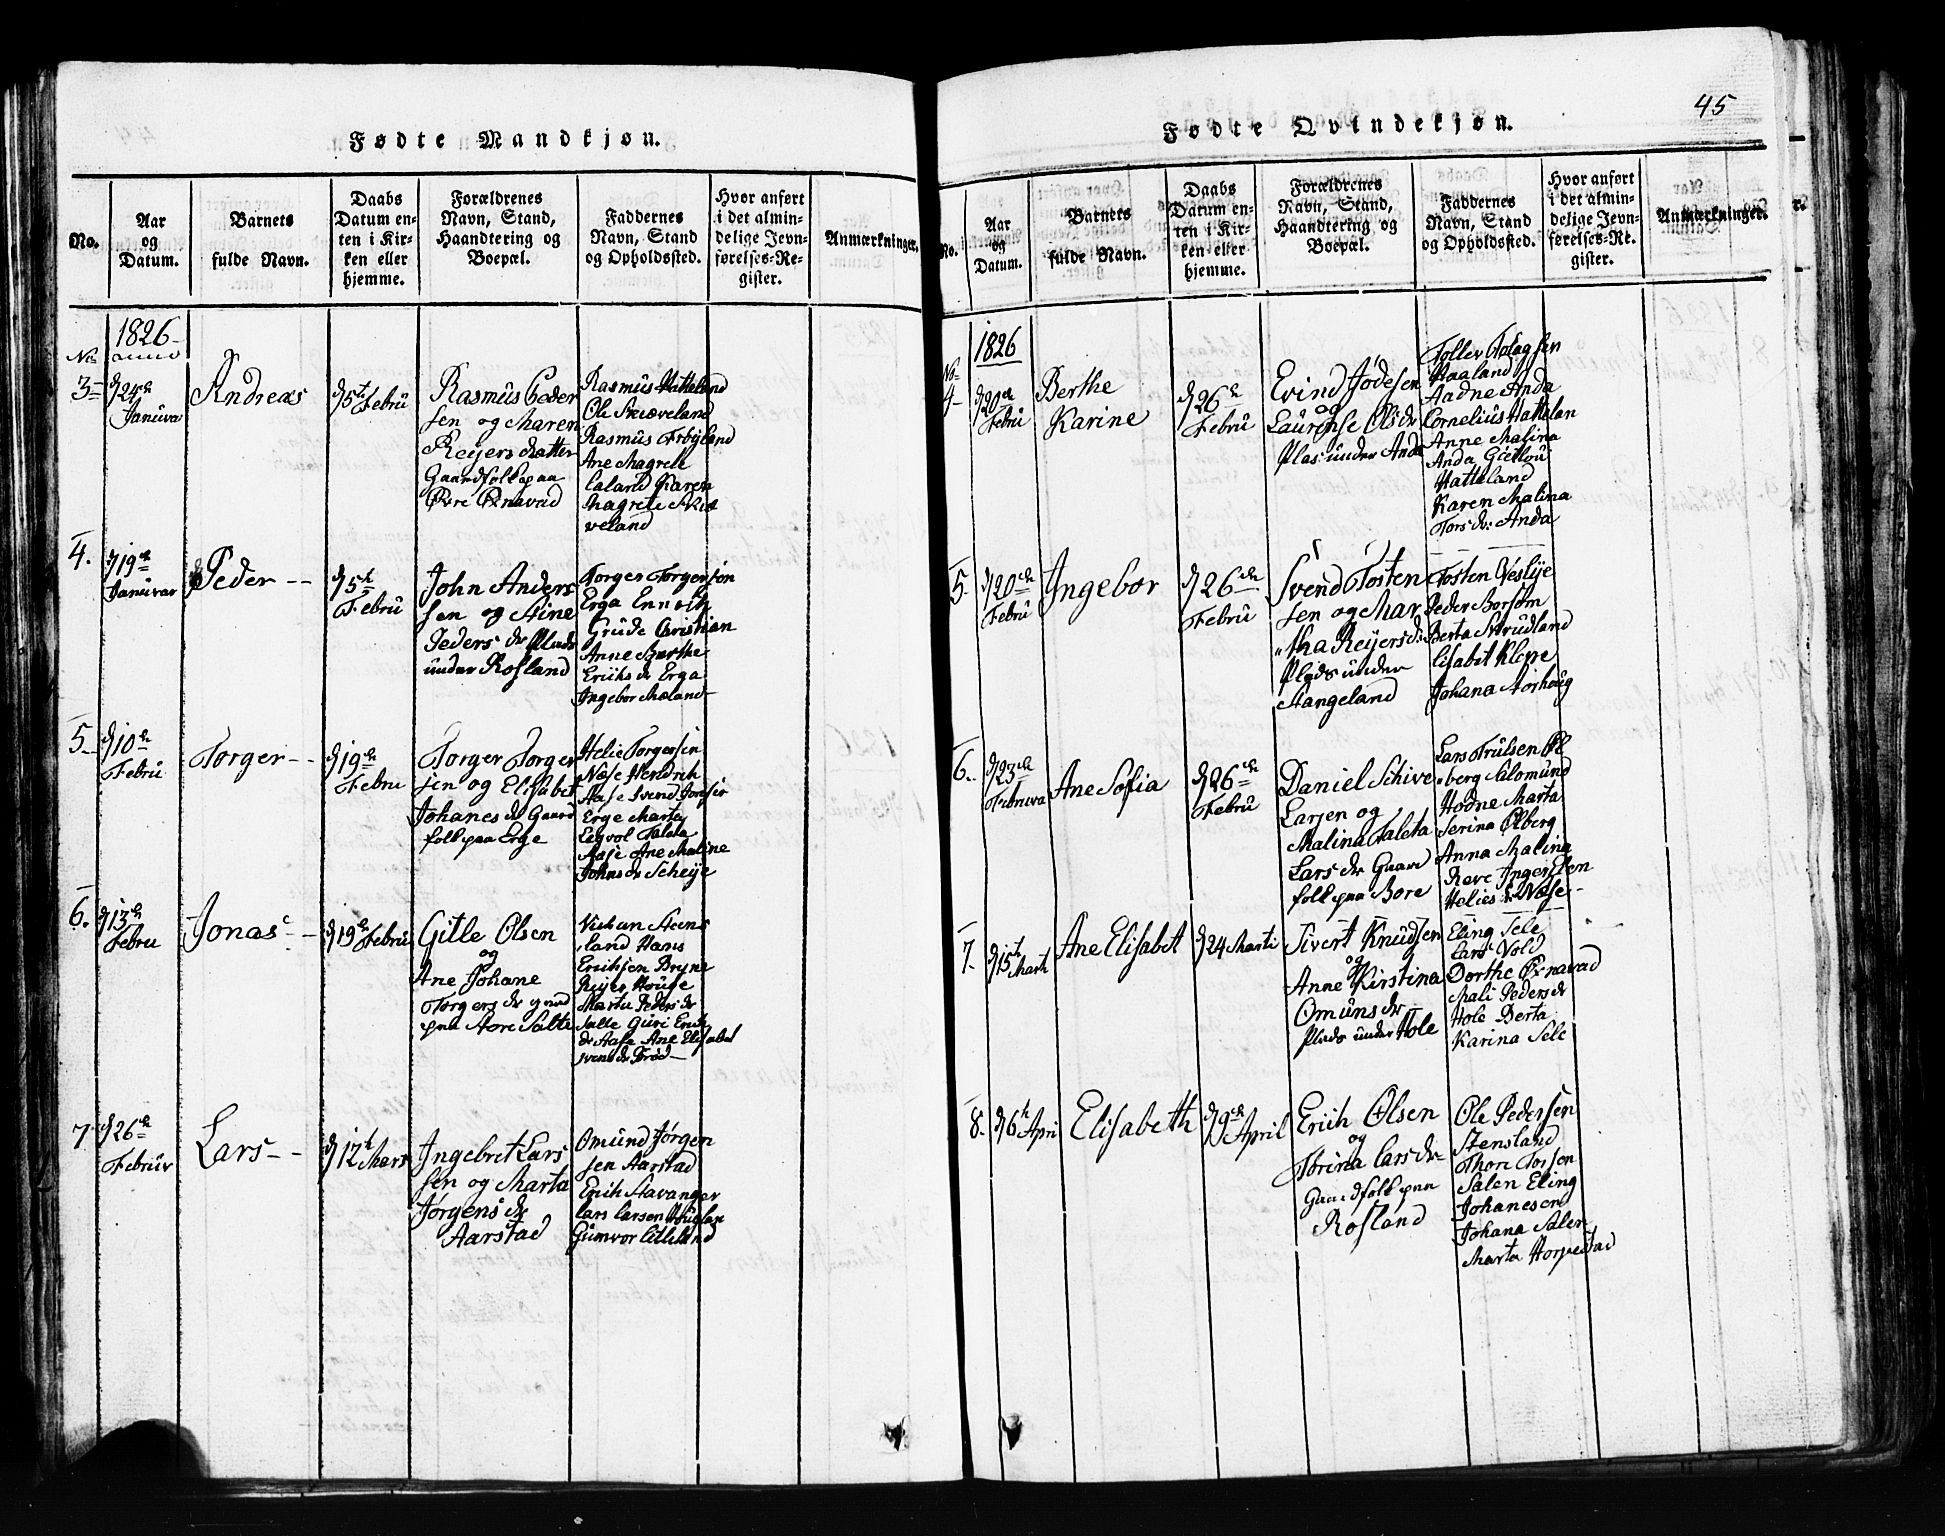 Fødte Mandkjøn.
No.
Aar
og
Datum.
Barnets
fulde Navn.
Daabs
Datum en-
ten i Kir-
ken eller
hjemme.
Forældrenes
Navn, Stand,
Haandtering og
Boepæl.
Faddernes
Navn, Stand
og Opholdssted.
Hvor anført
i det almin-
delige Jevn-
førelses-Re-
gister.
Anmærkninger.
1826
No
3
d 24de
Januva
Andreas
d 5t Febru
Rasmus Peder
sen og Maren
Reijers datter
Gaardfolk paa
Øvre Øxnavad
Rasmus Hatteland
Ole Skiæveland
Rasmus Frøyland
Ane Magrete
Laland Karen
Magrete Skiæ
veland
4.
d 19de
Januvar
Peder
d 5te
Febru
John Anders
sen og Stine
Peders dr Plads
under Rosland
Torger Torgersøn
Erga
Grude Christian
Anne Berthe
Eriks dr Erga
Ingebor Mæland
5
d 10de
Febru
Torger
d 19de
Febru
Torger Torger
sen og Elisabet
Johanes dr Gaard
folk paa Erge
Helie Torgersin
Nase Hendrik
Aase Svend
Erge Marta
Taleta
Aase Ane Maline
Johns dr
6.
d 13de
Febru
Jonas
d 19de Febru
Gitle Olsen
og
Ane Johane
Torgers dr
paa Nore Salte
land Hans
Eriksen Bryne
Reijer Houge
Marta Peders dr
Salte Guri Eriks
dr Aase Ane Elisabet
Svens dr
7
d 26de
Februr
Lars
d 12te Mars
Ingebret Lars
sen og Marta
Jørgens dr
Aarstad
Omund Jørgen
sen Aarstad
Erik Stavanger
Lars Larsen
Gunvor Litleland
45
Fødte Qvindekjøn.
No.
Aar
og
Datum.
Barnets
fulde Navn.
Daabs
Datum en-
ten i Kir-
ken eller
hjemme.
Forældrenes
Navn, Stand,
Haandtering og
Boepæl.
Faddernes
Navn, Stand
og Opholdssted.
Hvor anført
i det almin-
delige Jevn-
førelses-Re-
gister.
Anmærkninger.
r.
1826
No
4
d 20de
Febru
Berthe
Karine
d 26de
Febru
Evind Jødesen
og
Laurense Ols dr
Plas under Anda
Tollev Tolagsen
Haaland
Aadne Anda
Cornelius Hattelan
Anne Malina
Anda
Hatteland
Karen Malina
Tors dr: Anda
5
d 20de
Febru
Ingebor
d 26de
Febru
Svend Tosten
sen og Mar
tha Reijers dr:
Plads under
Stangeland
Tosten Veslije
Peder Borsøm
Berta Strudland
Lisabet Kleppe
Johana
6.
d 23de
Februva
Ane Sofia
d 26de
Febru
Daniel Schive
Larsen og
Malina Taleta
Lars dr Gaard
folk paa Bore
Lars Trulsen Øl
berg Salomund
Hodne Marta
Serina Ølberg
Anna Malina
Reve Inger Elen
Helies dr Nase
7.
d 15te
Marti
Ane Elisabet
d 24 Marti
Sivert Knudsen
og
Anne Kirstina
Omuns dr
Plads under Hole
Eling Sele
Lars Vold
Dorthe Øxnavad
Mali Peders dr
Hole Berta
Karina Sele
8.
d 6te Apri
Elisabeth
d 9de April
Erich Olsen
og
Torina Lars dr
Gaardfolk paa
Rosland
Ole Pedersen
Stensland
Thore Torsen
Salen Eling
Johanesen
Johana Salen
Marta Horpestad